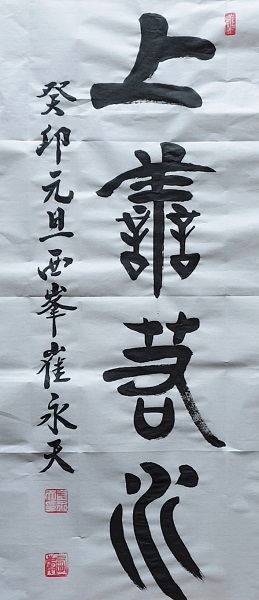 上善若水
癸卯元旦西峯崔永天